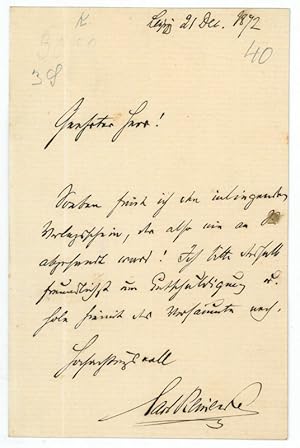 Leipzig 21 Dec. 1872
40
38
Geehrter Herr!
Soeben finde ich den inliegenden
Verlagsschein, der also nie an Sie
abgesandt ward! Ich bitte deshalb
freundlichst um Entschuldigung u.
hole hiemit das Versäumte nach.
Hochachtungsvoll
Carl Reinecke